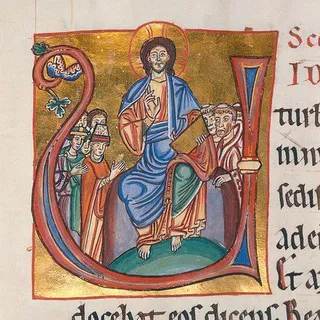 Sec
V I
turb
in m
sedis
ad e
Et ap
docebat eos dicens. Bea